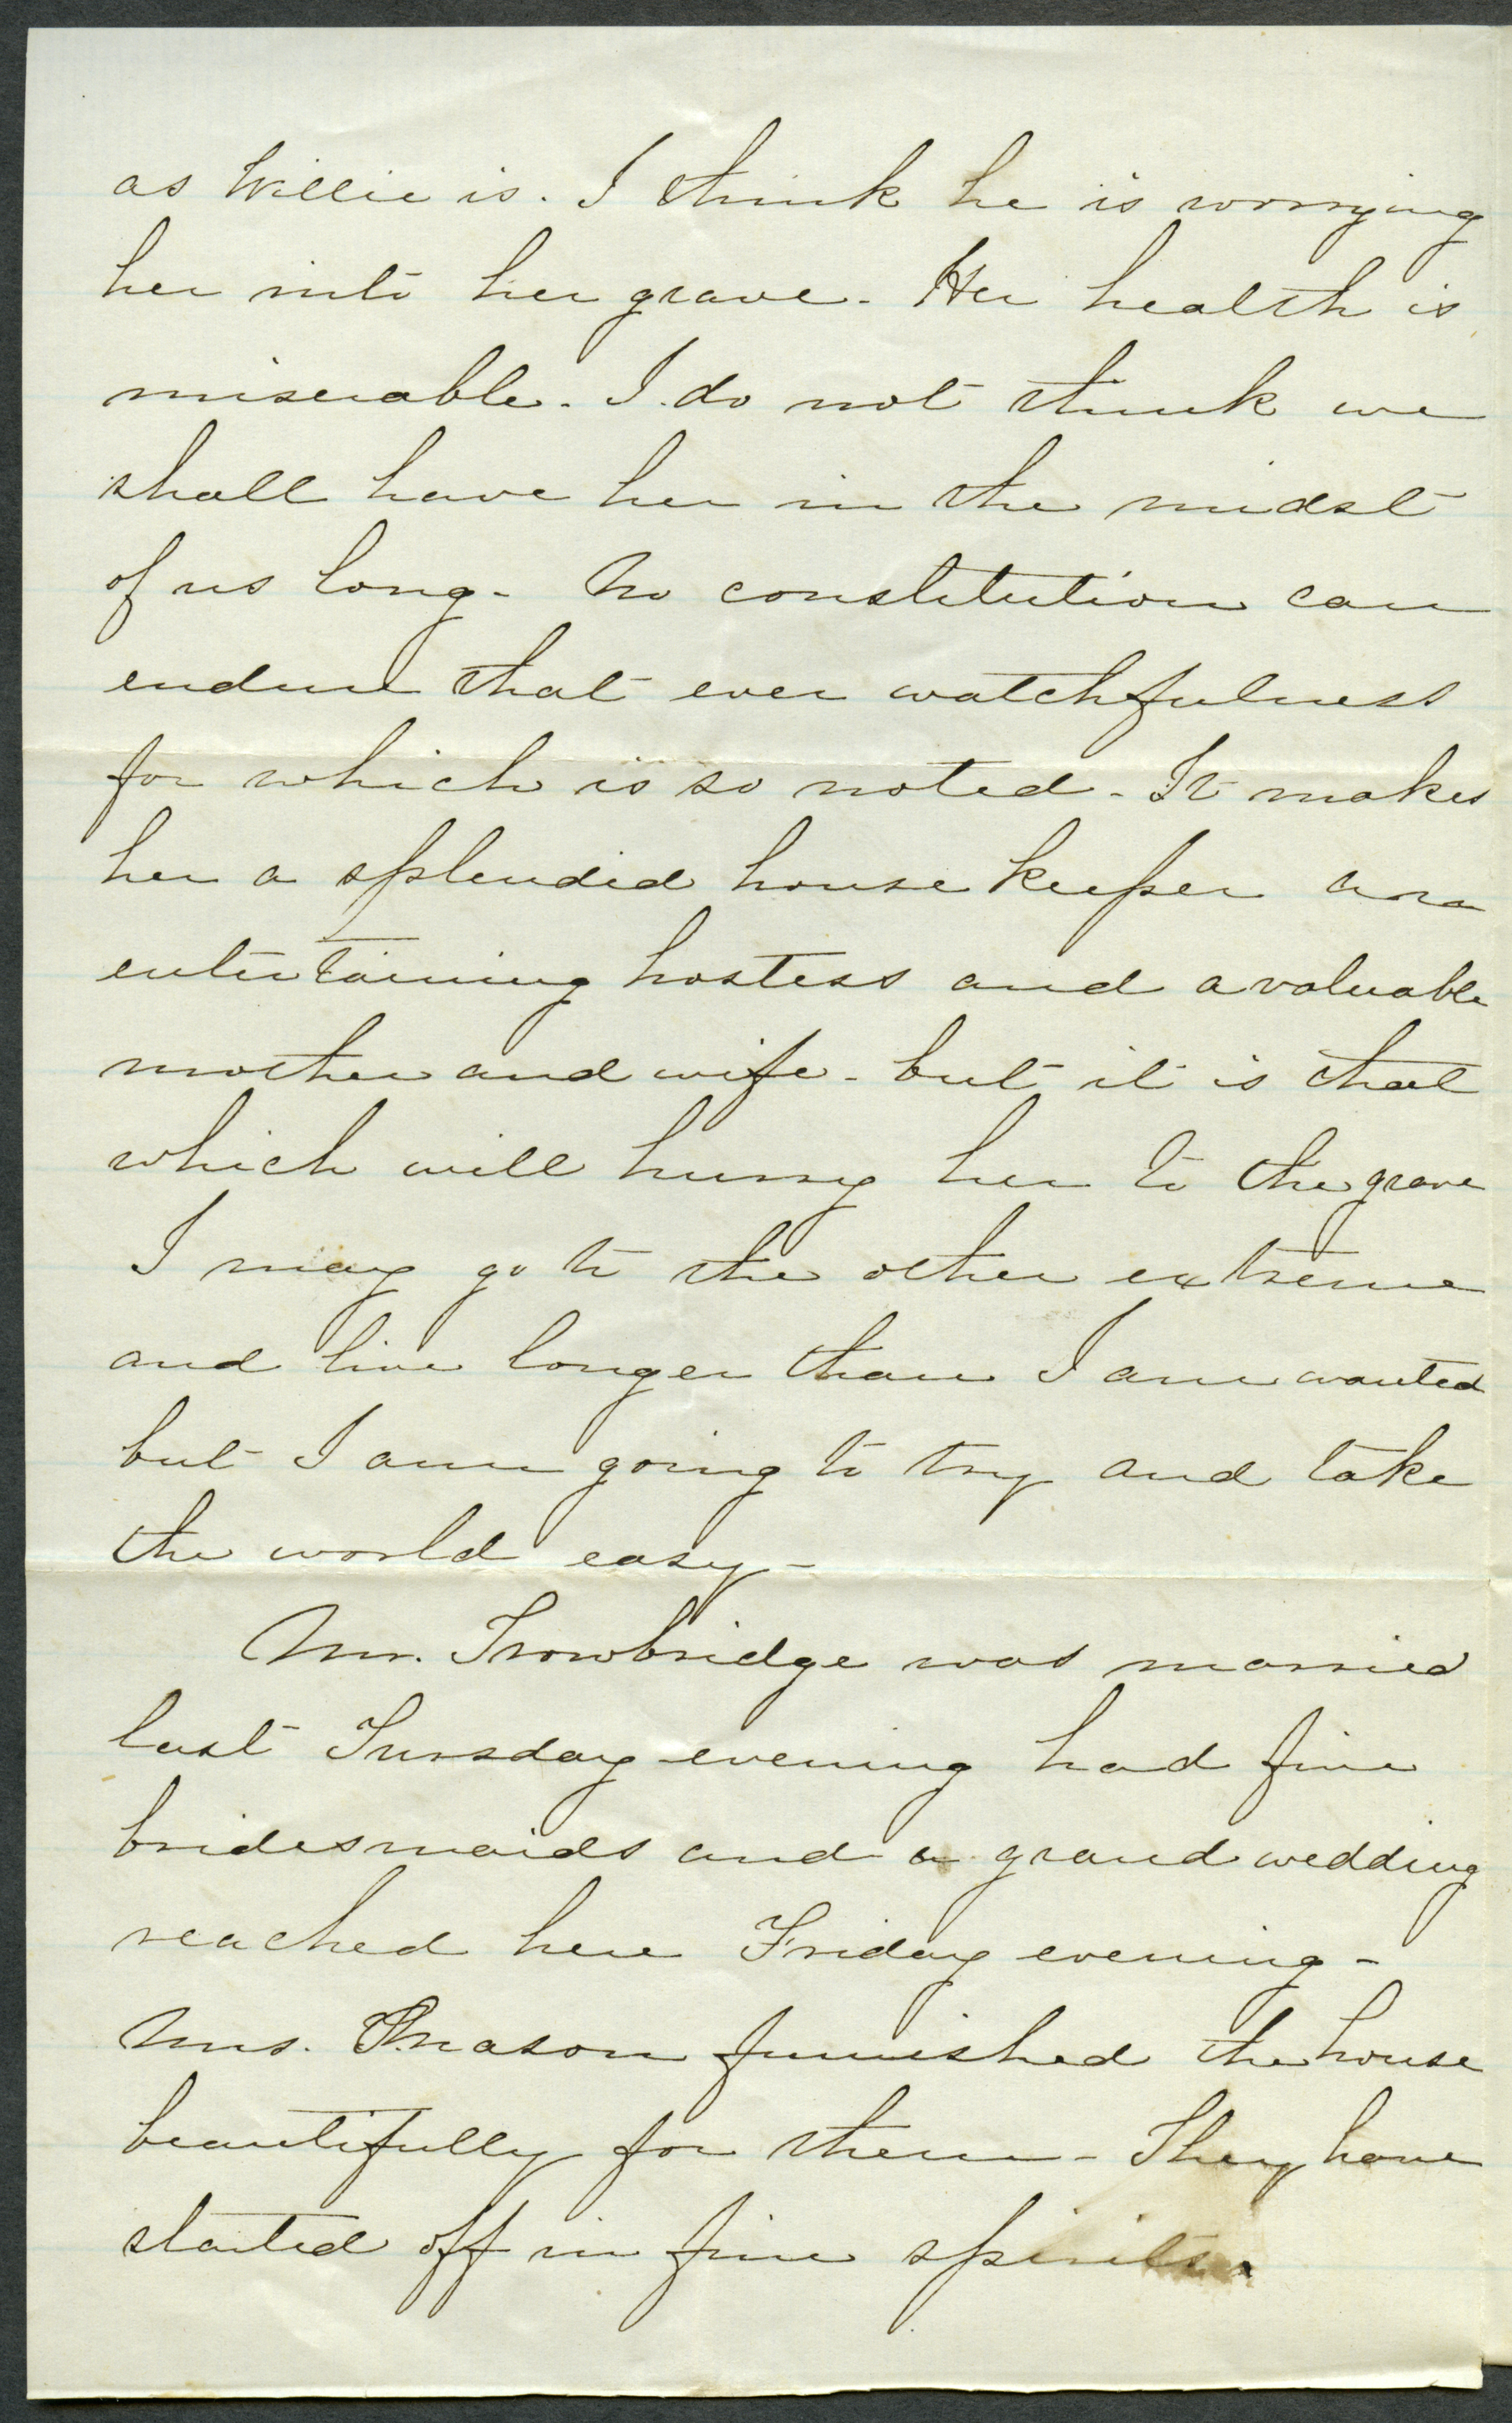 as Willie is. I think he is worrying
her into her grave - Her health is
miserable. I do not think we
shall have her in the midst
of us long - No constitution can
endure that ever watchfulness
for which is so noted - It makes
her a splendid house keeper and
entertaining hostess and a valuable
mother and wife - but it is that
which will hurry her to the grave
I may go to the other extreme
and live longer than I am wanted
but I am going to try and take
the world easy -
Mr. Trowbridge was married
last Tuesday evening had five
bridesmaids and a grand wedding
reached here Friday evening -
Mrs. Thrason furnished the house
beautifully for them - They have
started off in fine spirits.